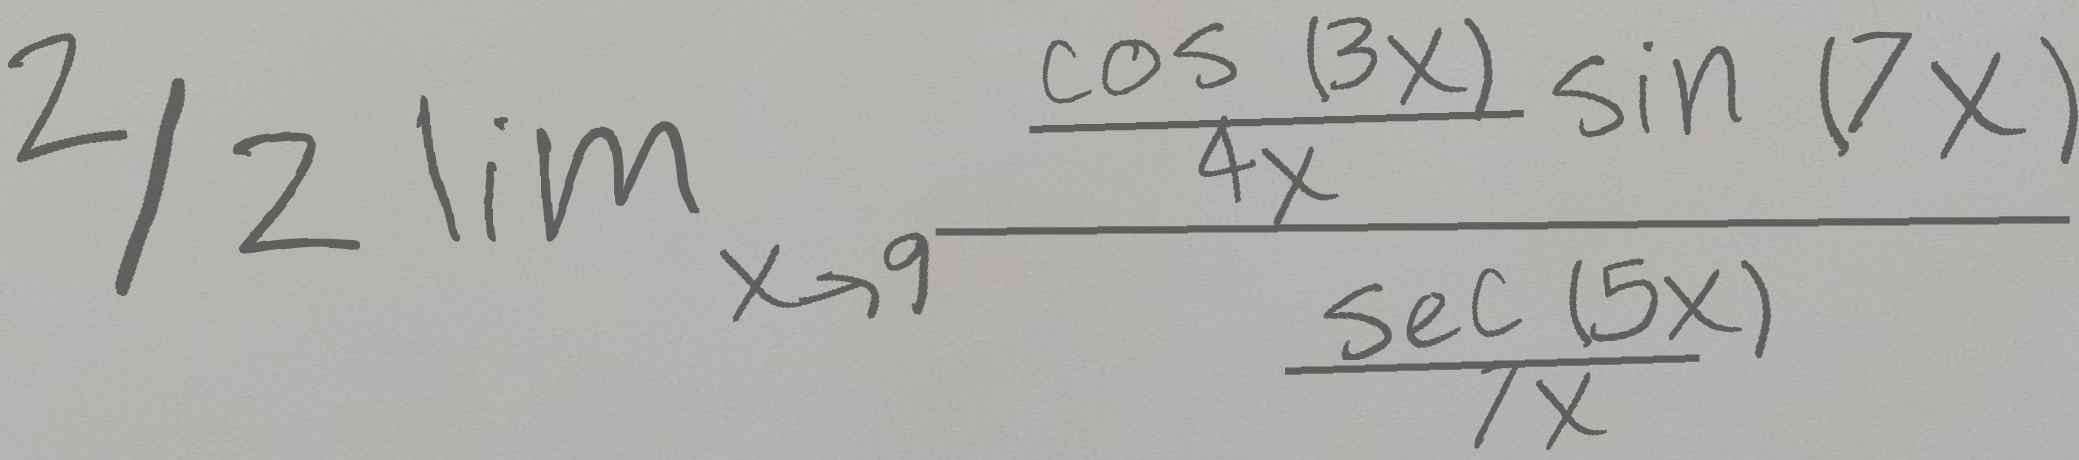 2/2 lim x→9 \frac{\frac{cos (3x)}{4x} sin (7x)}{\frac{sec (5x)}{7x}}